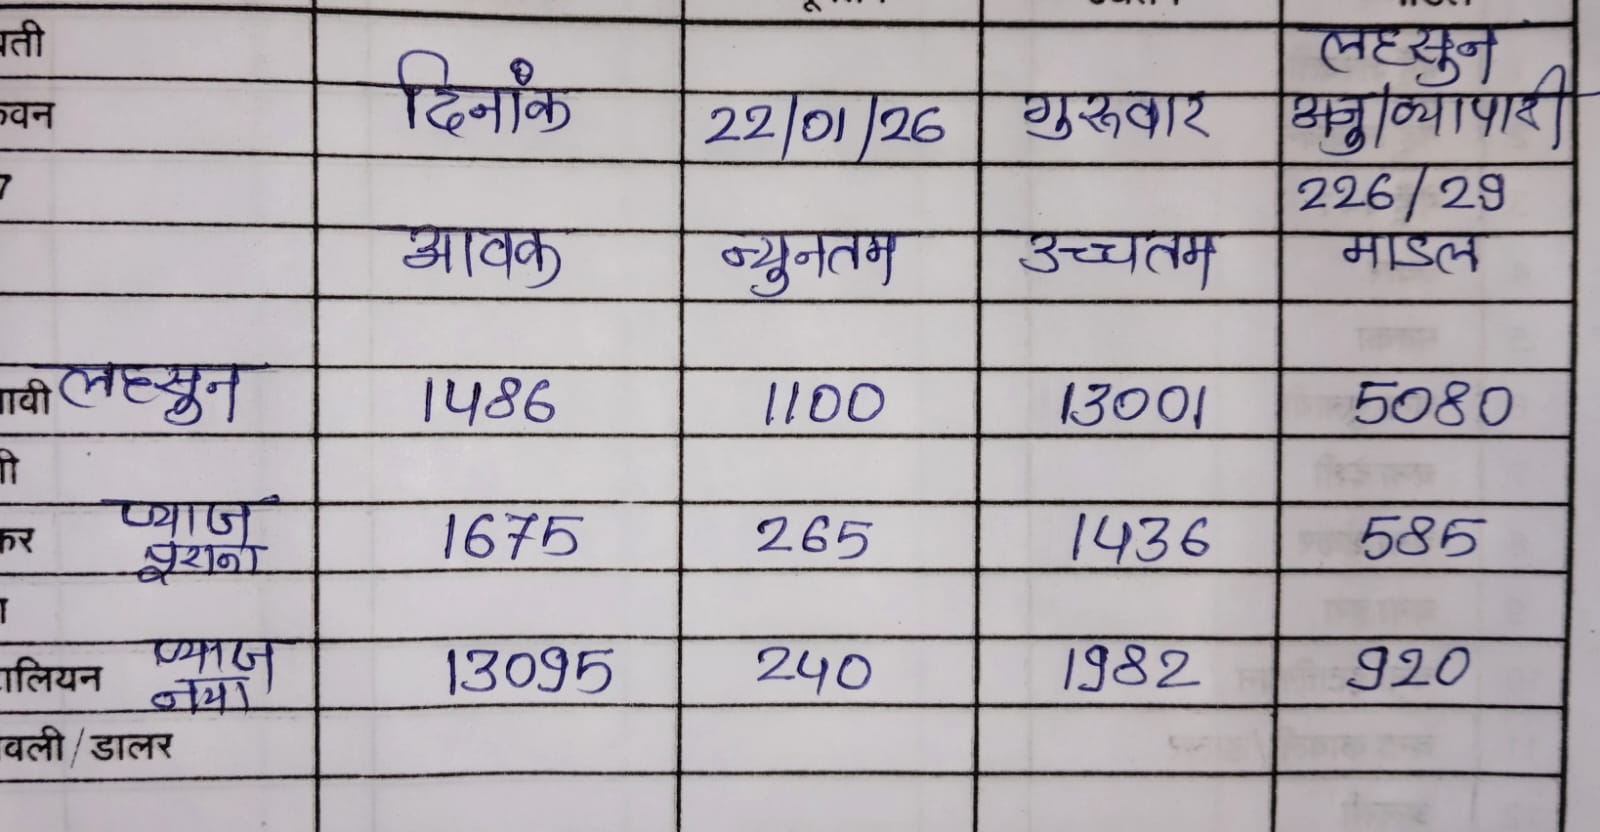 लहसुन
दिनांक 22/01/26 गुरूवार अनु/व्यापारी
226/29
आवक न्युनतम उच्चतम माडल
लहसुन 1486 1100 13001 5080
प्याज पुराना 1675 265 1436 585
प्याज नया 13095 240 1982 920
वली/डालर